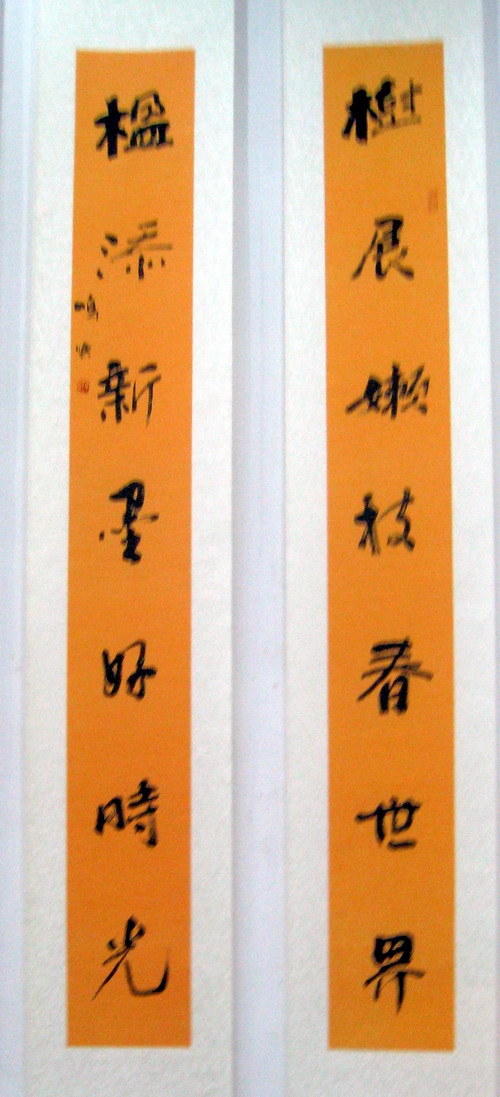 樹展嫩枝春世界
楹添新墨好時光